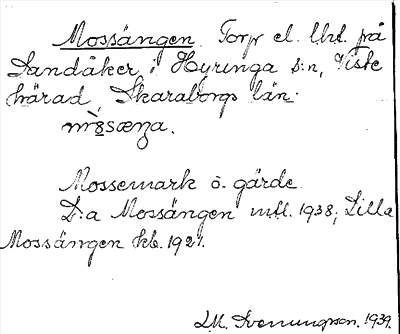 Mossängen. Torp el. lht. på
Sandåker i Hyringa s:n, Viste
härad, Skaraborgs län.
mòsæŋa.
Mossemark o. gärde.
L:a Mossängen mtl. 1938; Lilla
Mossängen kb. 1921.
L.M. Svenungsson. 1939.